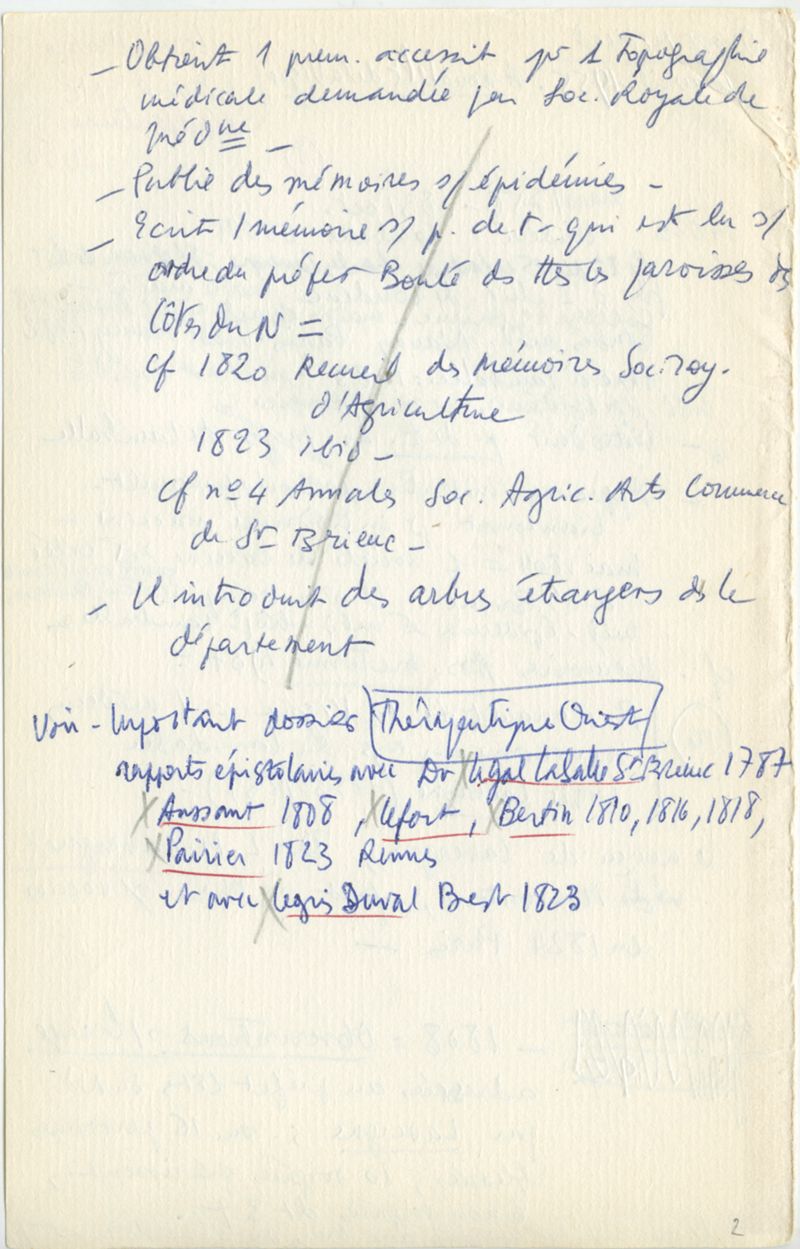 - Obtient 1 prem. accessit pr 1 Topographie
médicale demandée par Soc. Royale de
Méd ne -
- Publie des mémoires s/ épidémies -
- Ecrit 1 mémoire s/ p. de t- qui est lu s/
ordre du préfet Boulé ds ttes les paroisses des
Côtes du N =
cf 1820 Recueil des Mémoires Soc. roy.
d'Agriculture
1823 ibid -
cf nº 4 Annales Soc. Agric. Arts Commerce
de St Brieuc -
- Il introduit des arbres étrangers ds le
département
Voir - Important dossier Thérapeutique Ouest
rapports épistolaires avec Dr Legal Lasalle St Brieuc 1787
Aussant 1808, Lefort, Bertin 1810, 1816, 1818,
Poirier 1823 Rennes
et avec Legris Duval Brest 1823
2